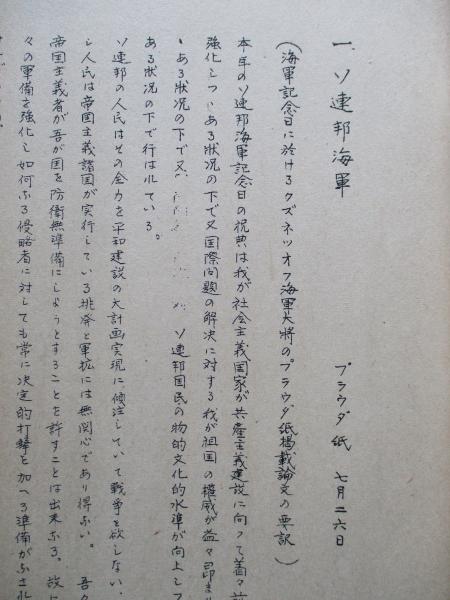 一、ソ連邦海軍
プラウダ紙 七月二六日
(海軍記念日に於けるクズネツオフ海軍大將のプラウダ紙掲載論文の要訳)
本年のソ連邦海軍記念日の祝典は我が社会主義国家が共産主義建設に向つて着々
強化しつゝある状況の下で又国際問題の解決に対する我が祖国の權威が益々昂ま
ゝある状況の下で又 ソ連邦国民の物的文化的水準が向上し
ある状況の下で行はれている。
ソ連邦の人民はその全力を平和建設の大計画実現に傾注していて戦争を欲しない。
し人民は帝国主義諸国が実行している挑発と軍拡には無関心であり得ない。 吾
帝国主義者が吾が国を防衛無準備にしようとすることを許すことは出来ぬ。故に
々の軍備を強化し如何なる侵略者に対しても常に決定的打撃を加へる準備がなされ